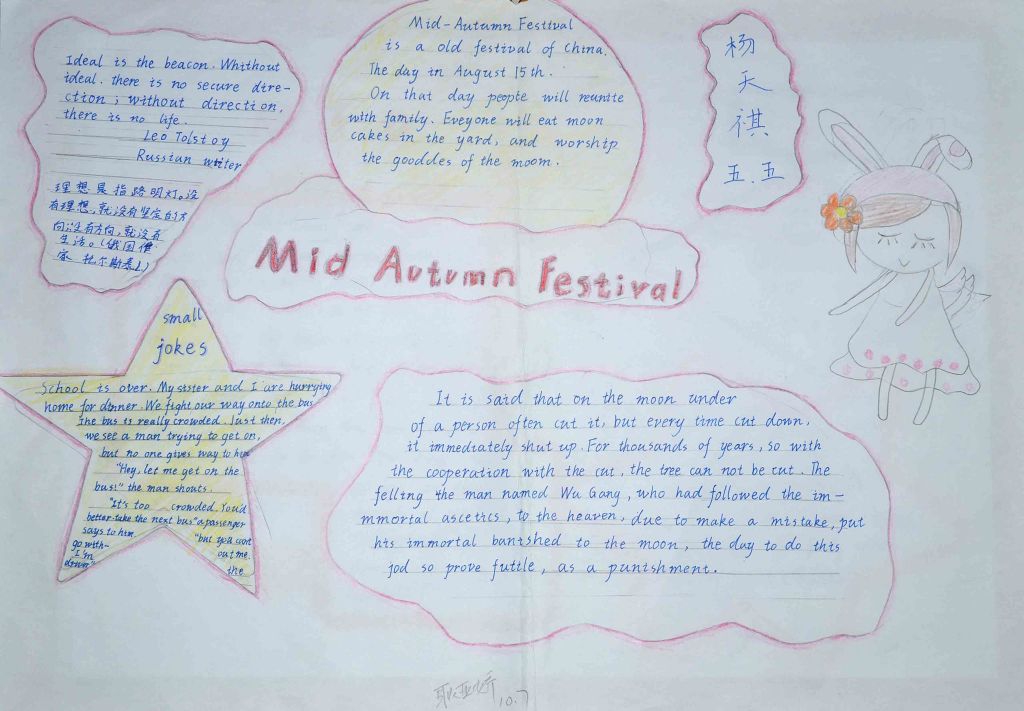 Ideal is the beacon. Whithout
ideal. there is no secure dire-
ction; without direction,
there is no life.
Leo Tolstoy
Russian writer
理想是指路明灯。没
有理想,就没有坚定的方
向;没有方向,就没有
生活。(俄国作
家 托尔斯泰)
Mid-Autumn Festival
is a old festival of China.
The day in August 15th.
On that day peopte will reunite
with family. Eveyone will eat moon
cakes in the yard, and worship
the gooddes of the moom.
杨
天
祺
五.五
Mid Autumn Festival
small
jokes
School is over. My sister and I are hurrying
home for dinner. We fight our way onto the bus
The bus is really crowded. Just then,
we see a man trying to get on,
but no one gives way to him
"Hey, let me get on the
bus!" the man shouts.
"It's too crowded. You'd
better take the next bus" a passenger
says to him. "but you cant
go with- out me.
I'm the
driver"
It is said that on the moon under
of a person often cut it, but every time cut down,
it immediately shut up. For thousands of years, so with
the cooperation with the cut, the tree can not be cut. The
felling the man named Wu Gang, who had followed the im-
mmortal ascetics, to the heaven, due to make a mistake, put
his immortal banished to the moon, the day to do this
jod so prove futtle, as a punishment.
10.7